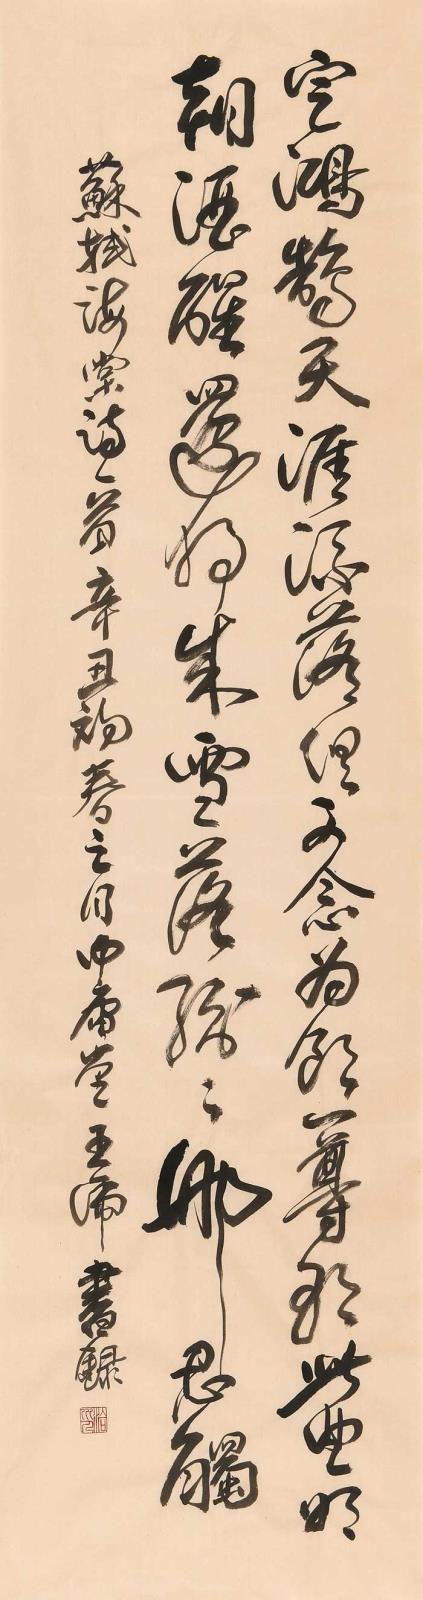 定鴻鵠天涯流落俱可念為飲一尊歌此曲明
朝酒醒還獨來雪落紛〻那忍觸
蘇軾海棠詩一首辛丑初春之月中庸堂王書錄